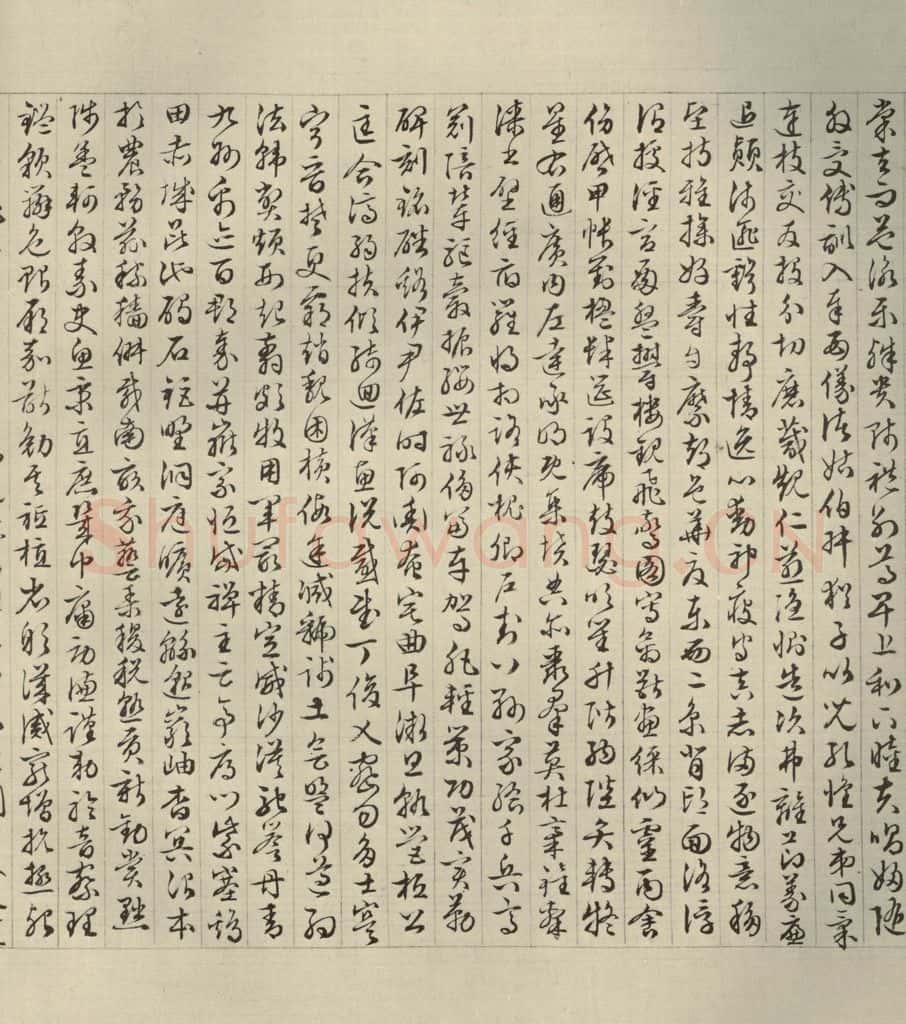 棠去而益詠樂殊貴賤禮別尊卑上和下睦夫唱婦隨
外受傅訓入奉母儀諸姑伯叔猶子比兒孔懷兄弟同氣
連枝交友投分切磨箴規仁慈隱惻造次弗離節義廉
退顛沛匪虧性靜情逸心動神疲守真志滿逐物意移
堅持雅操好爵自縻都邑華夏東西二京背邙面洛浮
渭據涇宮殿盤鬱樓觀飛驚圖寫禽獸畫綵仙靈丙舍
傍啟甲帳對楹肆筵設席鼓瑟吹笙升階納陛弁轉疑
星右通廣內左達承明既集墳典亦聚群英杜稾鍾隸
漆書壁經府羅將相路俠槐卿戶封八縣家給千兵高
冠陪輦驅轂振纓世祿侈富車駕肥輕策功茂實勒
碑刻銘磻溪伊尹佐時阿衡奄宅曲阜微旦孰營桓公
匡合濟弱扶傾綺迴漢惠說感武丁俊乂密勿多士寔
寧晉楚更霸趙魏困橫假途滅虢踐土會盟何遵約
法韓弊煩刑起翦頗牧用軍最精宣威沙漠馳譽丹青
九州禹跡百郡秦并嶽宗恆岱禪主云亭雁門紫塞雞
田赤城昆池碣石鉅野洞庭曠遠綿邈巖岫杳冥治本
於農務茲稼穡俶載南畝我藝黍稷稅熟貢新勸賞黜
陟孟軻敦素史魚秉直庶幾中庸勞謙謹敕聆音察理
鑑貌辨色貽厥嘉猷勉其祗植省躬譏誡寵增抗極殆
Shufawang.CN